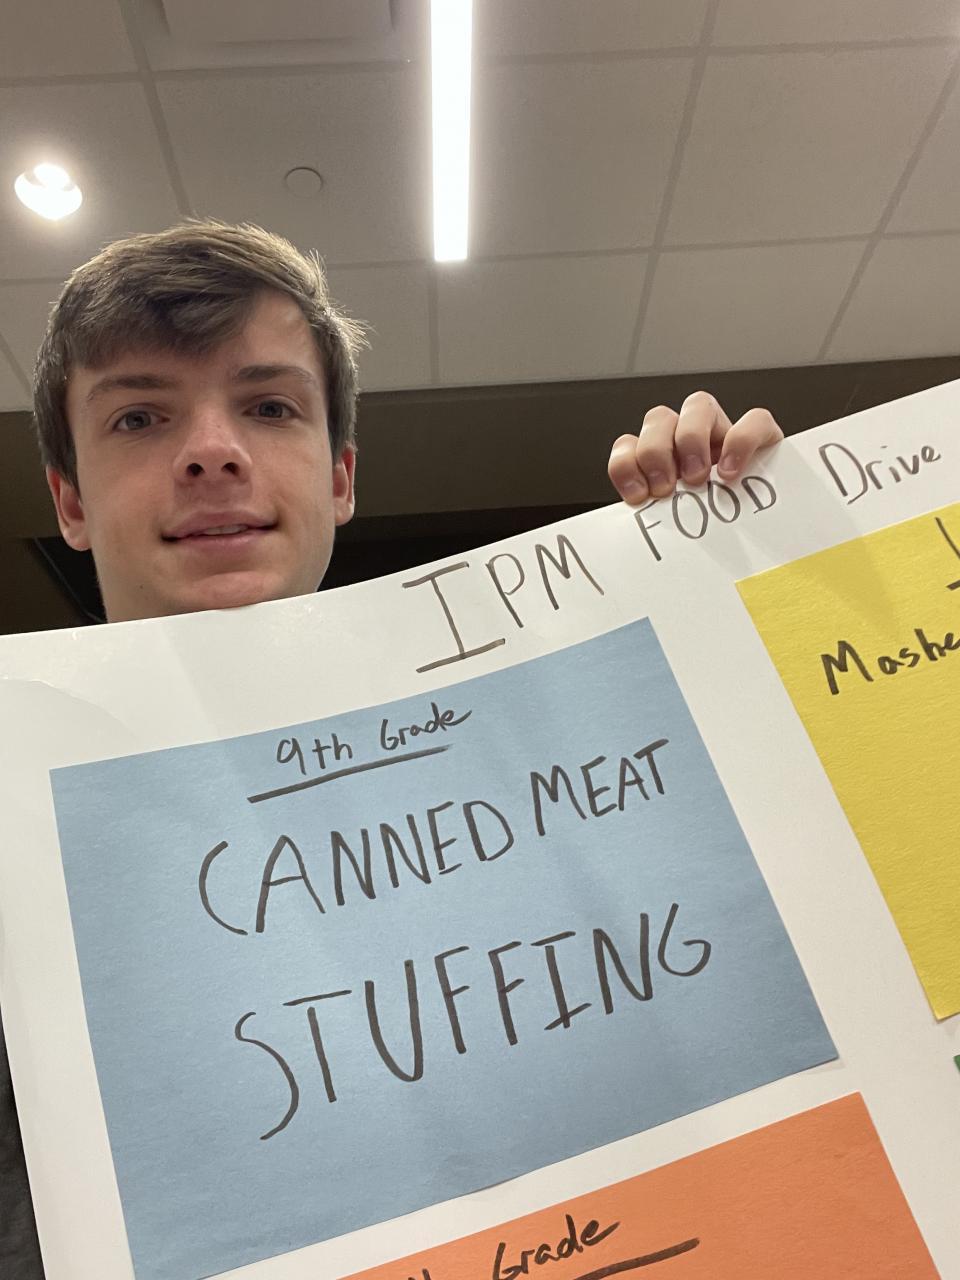 IPM FOOD Drive
9th Grade
CANNED MEAT
STUFFING
Grade